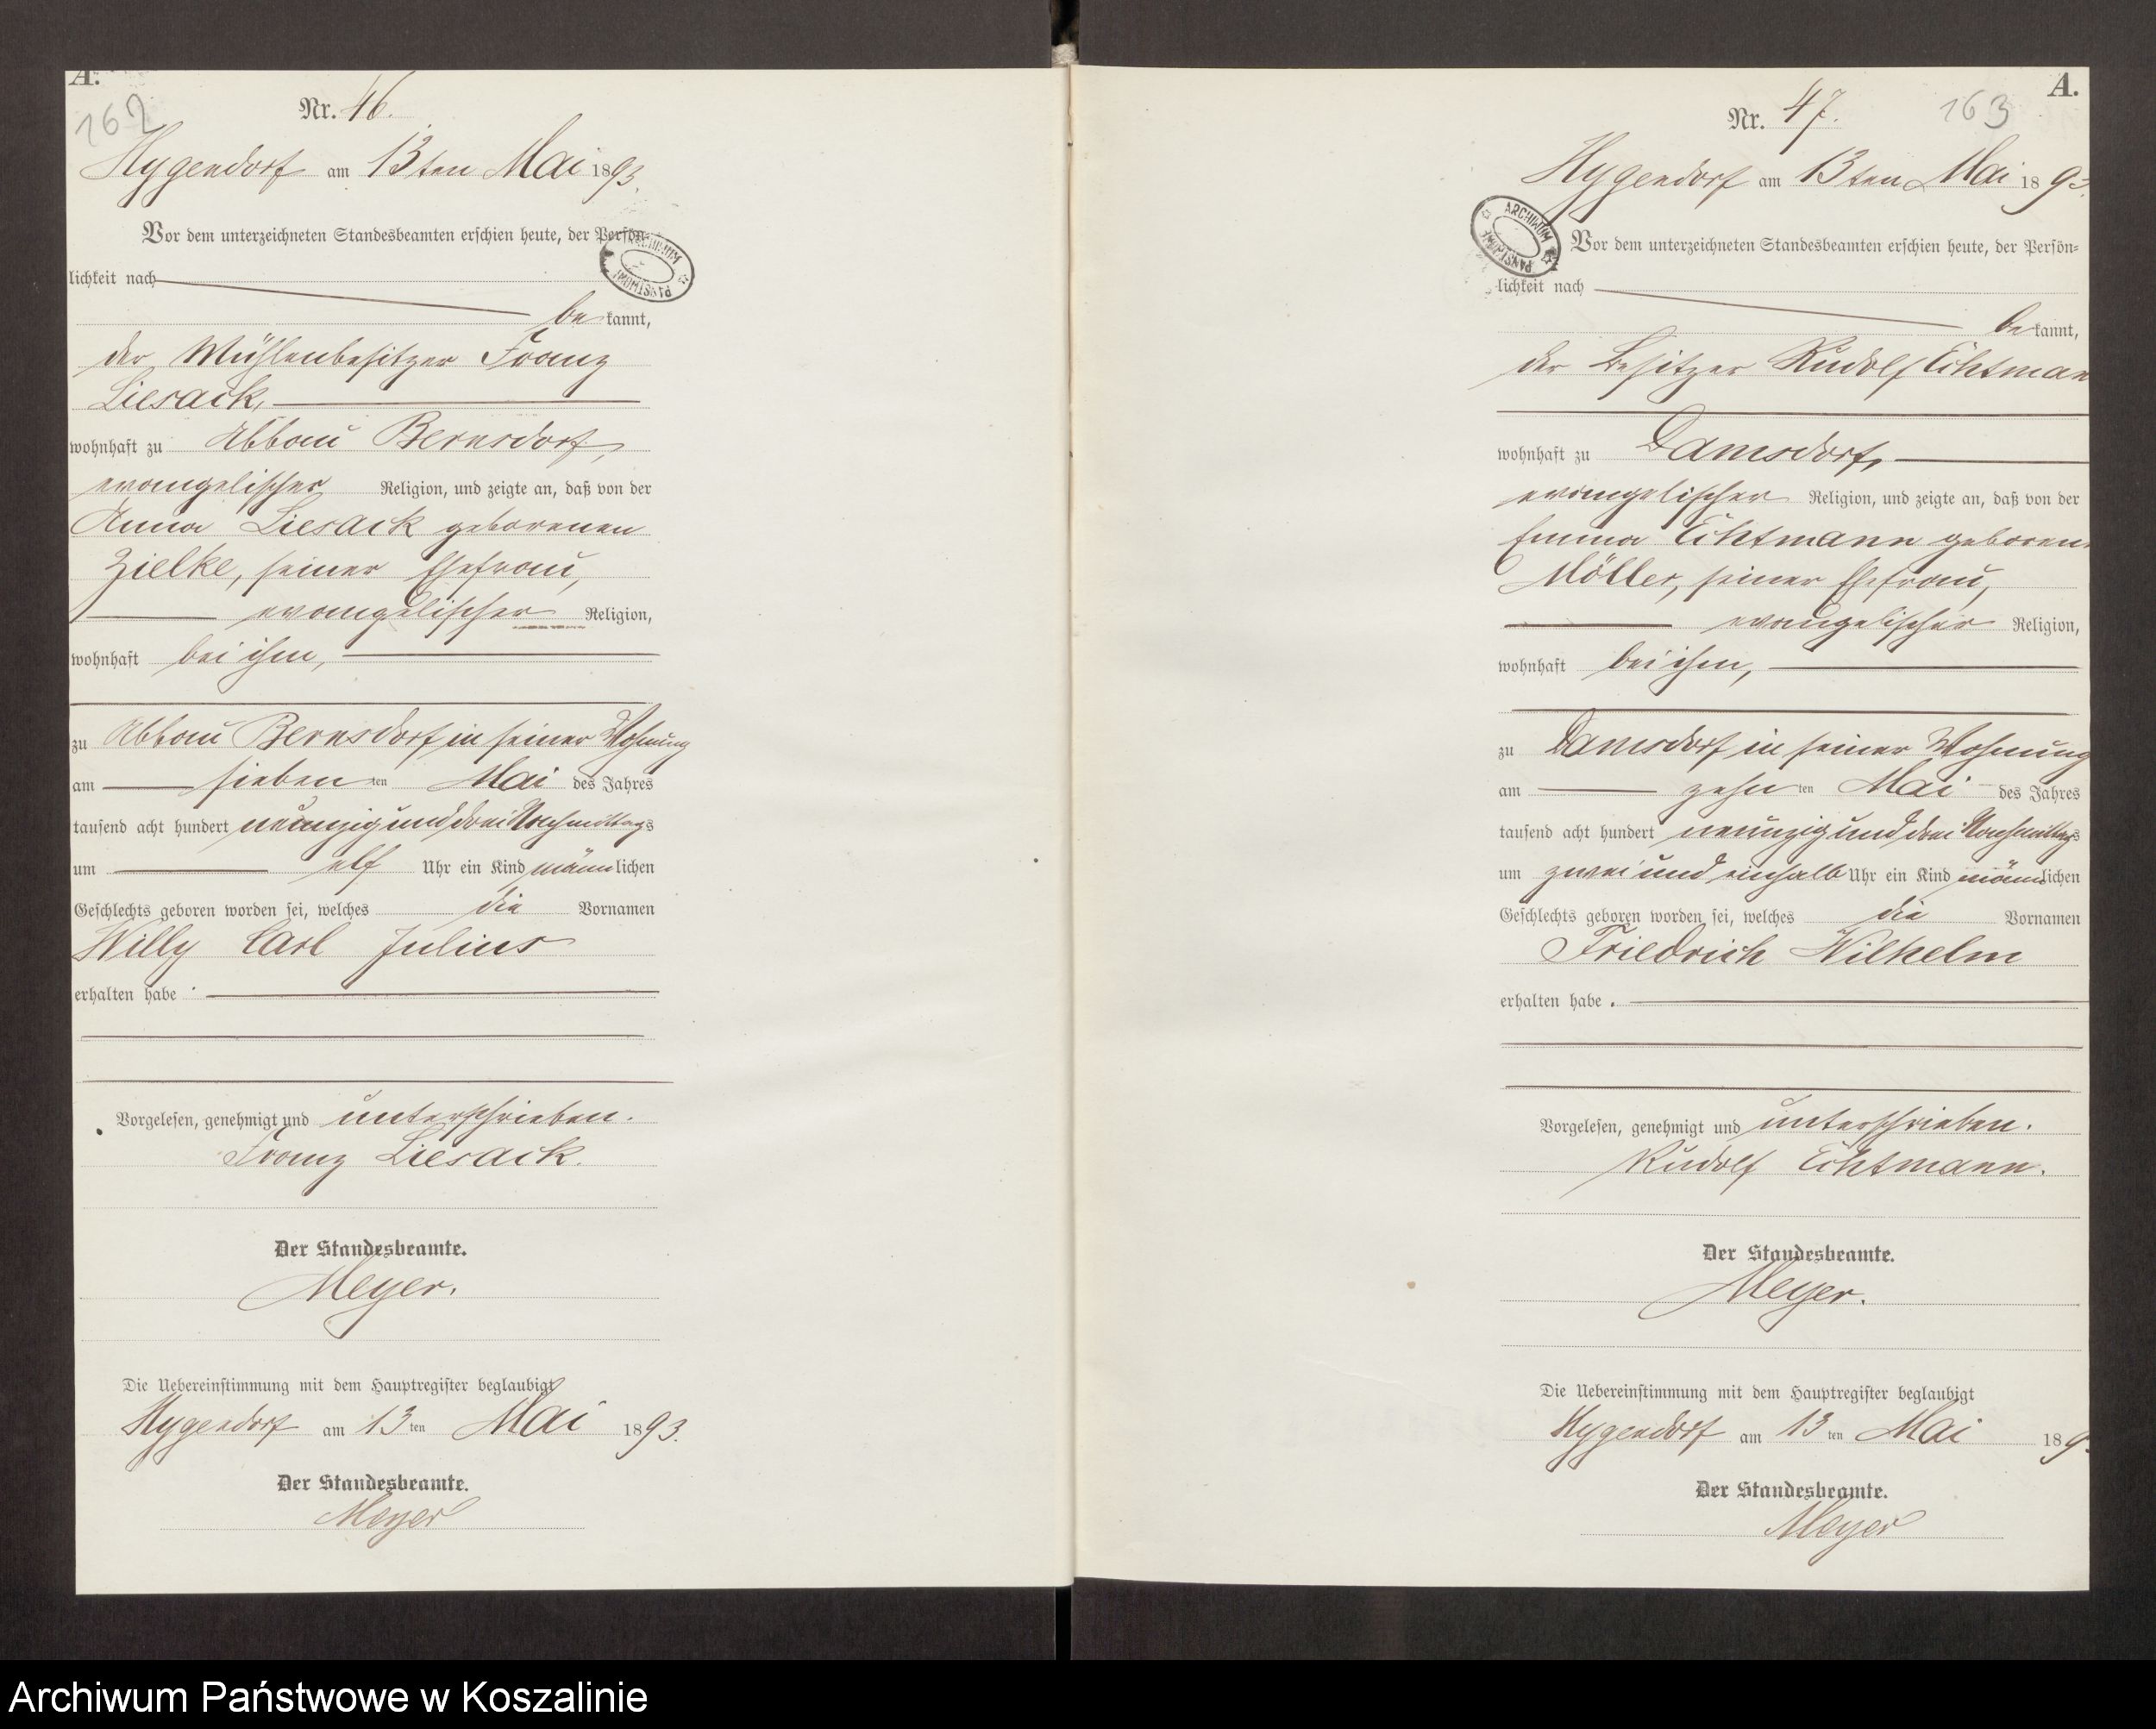 A.
162
Nr. 46.
Hygendorf am 13ten Mai 1893.
Vor dem unterzeichneten Standesbeamten erschien heute, der Persön-
lichkeit nach
be kannt,
der Mühlenbesitzer Franz
Liesack,
wohnhaft zu Abbau Bernsdorf,
evangelischer Religion, und zeigte an, daß von der
Anna Liesack geborenen
Zielke, seiner Ehefrau,
evangelischer Religion,
wohnhaft bei ihm,
zu Abbau Bernsdorf in seiner Wohnung
am sieben ten Mai des Jahres
tausend acht hundert neunzig und drei Nachmittags
um elf Uhr ein Kind männlichen
Geschlechts geboren worden sei, welches die Vornamen
Willy Carl Julius
erhalten habe
Vorgelesen, genehmigt und unterschrieben.
Franz Liesack.
Der Standesbeamte.
Meyer.
Die Uebereinstimmung mit dem Hauptregister beglaubigt
Hygendorf am 13 ten Mai 1893.
Der Standesbeamte.
Meyer
A.
163
Nr. 47.
Hygendorf am 13ten Mai 1893.
ARCHIWUM PAŃSTWOWE
Vor dem unterzeichneten Standesbeamten erschien heute, der Persön-
lichkeit nach
be kannt,
der Besitzer Rudolf Echtman
wohnhaft zu Damsdorf,
evangelischer Religion, und zeigte an, daß von der
Emma Echtmann geboren
Möller, seiner Ehefrau,
evangelischer Religion,
wohnhaft bei ihm,
zu Damsdorf in seiner Wohnung
am zehn ten Mai des Jahres
tausend acht hundert neunzig und drei Nachmittags
um zwei und einhalb Uhr ein Kind männlichen
Geschlechts geboren worden sei, welches die Vornamen
Friedrich Wilhelm
erhalten habe.
Vorgelesen, genehmigt und unterschrieben.
Rudolf Echtmann.
Der Standesbeamte.
Meyer.
Die Uebereinstimmung mit dem Hauptregister beglaubigt
Hygendorf am 13 ten Mai 189
Der Standesbeamte.
Meyer
Archiwum Państwowe w Koszalinie